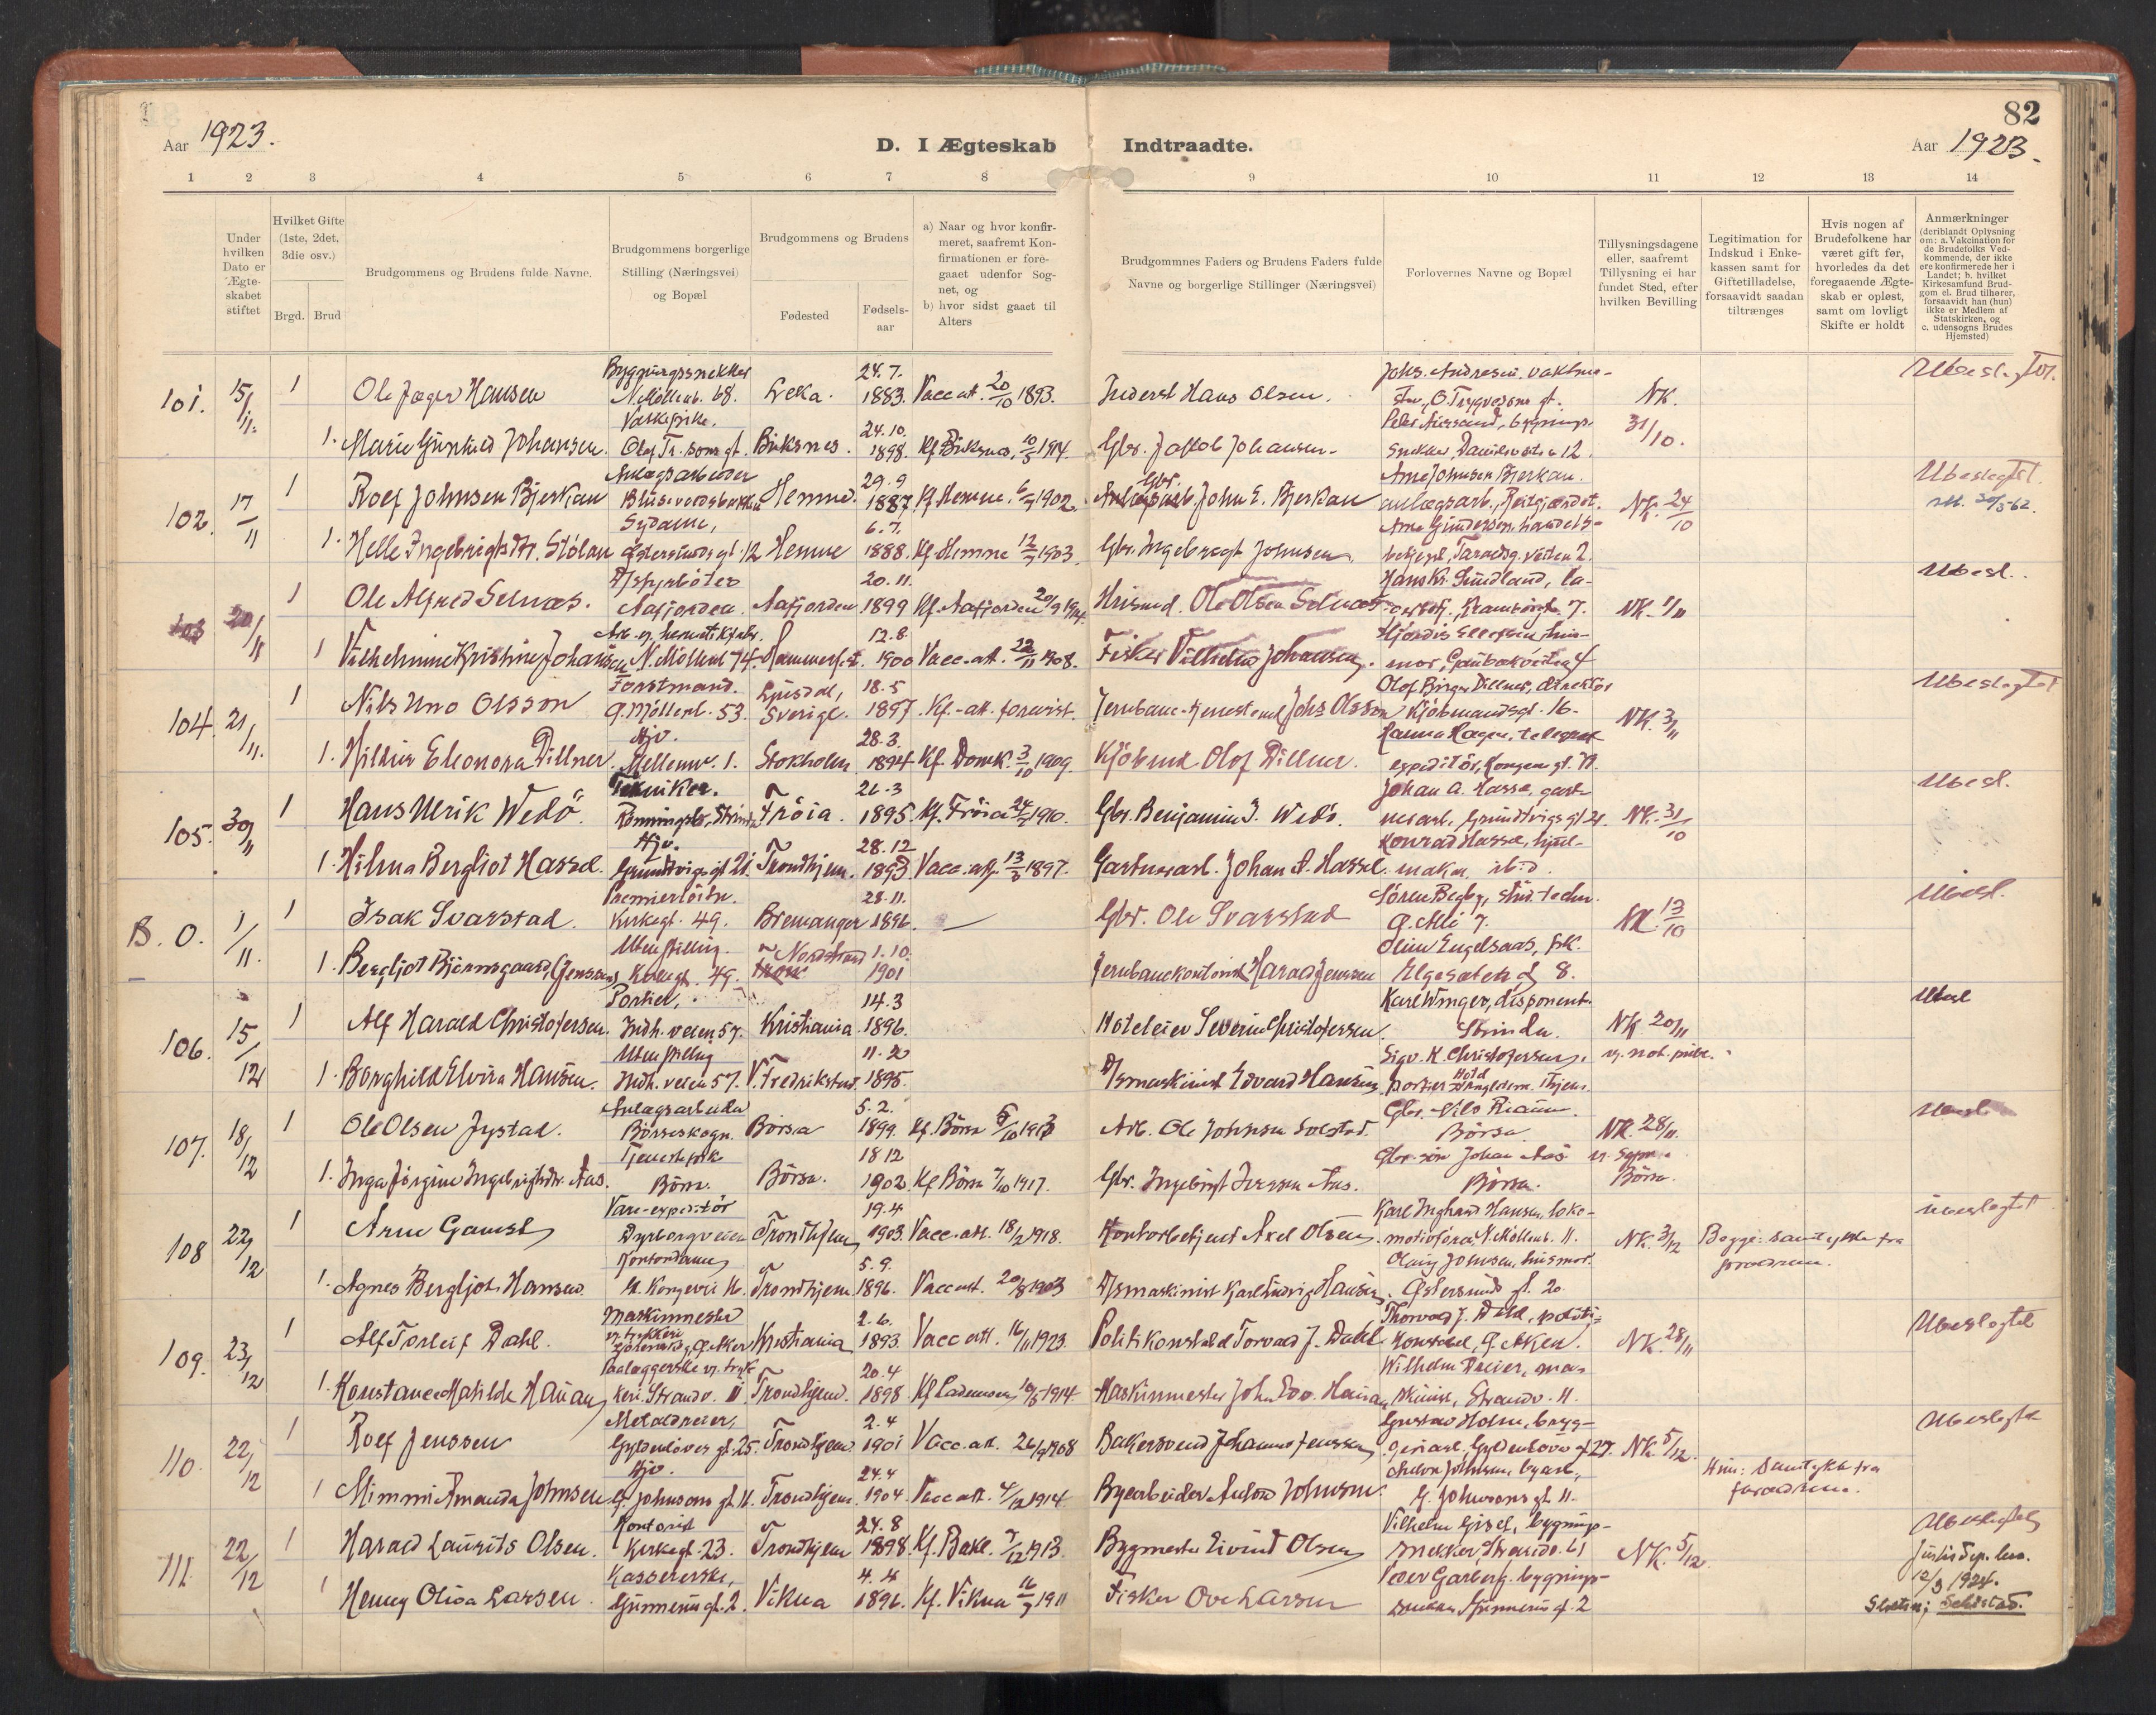 82
Aar 1923.
D. I Ægteskab Indtraadte.
Aar 1923.
1 2 3 4 5 6 7 8 9 10 11 12 13 14
Under hvilken Dato er Ægteskabet stiftet
Hvilket Gifte (1ste, 2det, 3die osv.)
Brgd. Brud
Brudgommens og Brudens fulde Navne.
Brudgommens borgerlige Stilling (Næringsvei) og Bopæl
Brudgommens og Brudens
Fødested
Fødsels-aar
a) Naar og hvor konfirmeret, saafremt Konfirmationen er foregaaet udenfor Sognet, og
b) hvor sidst gaaet til Alters
Brudgommnes Faders og Brudens Faders fulde Navne og borgerlige Stillinger (Næringsvei)
Forlovernes Navne og Bopæl
Tillysningsdagene eller, saafremt Tillysning ei har fundet Sted, efter hvilken Bevilling
Legitimation for Indskud i Enkekassen samt for Giftetilladelse, forsaavidt saadan tiltrænges
Hvis nogen af Brudefolkene har været gift før, hvorledes da det foregaaende Ægteskab er opløst, samt om lovligt Skifte er holdt
Anmærkninger (deriblandt Oplysning om: a. Vakcination for de Brudefolks Vedkommende, der ikke ere konfirmerede her i Landet; b. hvilket Kirkesamfund Brudgom el. Brud tilhører, forsaavidt han (hun) ikke er Medlem af Statskirken, og c. udensogns Brudes Hjemsted)
101. 15/11. 1 Ole Jæger Hansen Bygningssnekker N. Möllenb. 68. Leka. 24.7. 1883. Vacc att. 20/10 1893. Inderst Hans Olsen. Johs. Andresen. NK. 31/10. Ubeslegtet.
1. Marie Gunhild Johansen. Vaskepike. Olaf Tr. sons gt. Buksnes. 24.10. 1898. Kf. Buksnes, 10/5 1914. Gbr. Jakob Johansen.
102. 17/11 1 Rolf Johnsen Bjerkan Anlægsarbeider Hemne. 29.9 1887 Kf. Hemne. 6/7 1902. Gbr. John E. Bjerkan Arne Johnsen Bjerkan. anlægsarb., NK. 24/10 Ubeslegtet.
1. Helle Ingebrigtsdtr. Stölan Sydame, Östersunds gt. 12 Hemne 6.7. 1888. Kf. Hemne 12/7 1903 Gbr. Ingebrigt Johnsen.
103 20/11 1 Ole Alfred Selnæs. Aafjorden. Aafjorden 20.11. 1899 Kf. Aafjorden 20/9 1914. Husmd. Ole Olsen Selnæs Hans Kr. Sundland, NK. 1/11 Ubesl.
1 Vilhelmine Kristine Johansen N. Möllenb. 74. Hammerfest. 12.8. 1900 Vacc. att. 22/11 1908. Fisker Vilhelm Johansen.
104. 21/11. 1 Nils Uno Olsson Forstmand. Ö. Möllenb. 53. Ljusdal, Sverige. 18.5 1897. Kf.-att. forevist. Johs Olsson Olof Birger Dillner, direktör Kjöbmandsgt. 16. NK. 3/11 Ubeslegtet
1. Hildur Eleonora Dillner. Hjv. Mellemv. 1. Stokholm 28.3. 1894 Kf. Domk. 3/10 1909. Kjöbmd. Olof Dillner.
105. 30/11 1 Hans Ulrik Wedö. Tekniker. Fröia. 26.3 1895. Kf. Fröia 24/7 1910. Gbr. Benjamin J. Wedö. Johan A. Hassel, NK. 31/10 Ubesl.
1. Hilma Bergliot Hassel. Hjv. Grundtvigs gt 21. Trondhjem. 28.12 1893 Vacc. att. 13/5 1897. Gartnerarb. Johan A. Hassel. Konrad Hassel, hjulmaker, ibid.
B. O. 1/11. 1 Isak Svarstad. Premierlöitn. Kirkegt. 49. Bremanger 28.11. 1896. Gbr. Ole Svarstad Sören Begby, stud. techn. NK. 13/10 Ubesl.
1. Bergljot Björnsgaard (Jenssen) Uten stilling. Kirkegt. 49. Nordstrand 1.10. 1901 Jernbanekontorist Harald Jenssen Elgesæter gt 8.
106. 15/12 1 Alf Harald Christofersen. Portier, Indh. veien 57. Kristiania 14.3 1896. Hoteleier Severin Christofersen. Karl Winger, disponent. Strinda. NK 20/11 Ubesl
1. Borghild Elvira Hansen. Uten stilling Indh. veien 57. Fredrikstad. 1895. D/smaskinist Edvard Hansen Sigv. K. Christofersen, portier
107. 18/12 1 Ole Olsen Jystad. Anlægsarbeider Börseskogn. Börsa 5.2. 1899. Kf. Börsa Arb. Ole Johnsen Solstad. Börsa. NK. 28/11.
1. Inga Jörgine Ingebrigtsdtr. Aas. Börsa. Börsa. 18 12 1902. Kf. Börsa 7/10 1917. Gbr. Ingebrigt Iversen Aas. Johan Aas Börsa. Börsa.
108 22/12 1 Arne Gamst Vare-expeditör Dyrborgveien Trondhjem 19.4 1903. Vacc. att. 18/2 1918. Kontorbetjent Axel Olsen. Karl Ingvard Hansen, lokomotivförer, N. Möllenb. 11. NK. 3/12 Begge: samtykke fra forældrene. Ubeslegtet
1. Agnes Bergljot Hansen. Kontordame Trondhjem 5.9. 1896. Vacc att. 20/8 1903 D/smaskinist Karl Ludvig Hansen. husmor. Östersunds gt. 20.
109. 23/12 1 Alf Torleif Dahl. Maskinmester Kristiania 2.6. 1893. Vacc att. 16/11 1923. Politikonstabel Torvald J. Dahl. Thorvald J. Dahl, politikonstabel, Ö. Aker. NK. 28/11 Ubeslegtet
1. Konstance Mathilde Hauan Strandv. 11. Trondhjem. 20.4 1898 Kf. Lademoen 1914. Maskinmester John Edv. Hauan Wilhelm Dreier, maskinist, Strandv. 11.
110. 22/12 1 Rolf Jenssen Metaldreier, Gyldenlöves gt. 25. Trondhjem. 2.4 1901 Vacc. att. 26/9 1908 Bakersvend Johannes Jenssen Gustav Holm, bryggeriarb. Gyldenlöves gt 27. NK. 5/12. Ubeslegtet
1 Mimmi Amanda Johnsen Hjv. G. Johnsons gt 11. Trondhjem. 24.4 1904. Vacc att. 4/12 1914. Byarbeider Anton Johnsen. Anton Johnsen, byarb., G. Johnsons gt. 11. Hun: Samtykke fra forældrene.
111. 22/12 1 Harald Laurits Olsen. Kontorist Kirkegt. 23. Trondhjem 24.8 1898. Kf. Bakl. 7/12 1913. Bygmester Eivind Olsen Vilhelm Gisel, bygningssnekker, Strandv. 61 NK. 5/12. Ubeslegtet
1 Henny Olisa Larsen. Kassererske, Gunnerus gt. 2. Vikna 4.4 1896. Kf. Vikna 16/7 1911 Fisker Ove Larsen Peder Garberg, bygningssnekker, Gunnerus gt. 2 Justisdep. bev. 12/3 1924. Slektsn; Selestad.